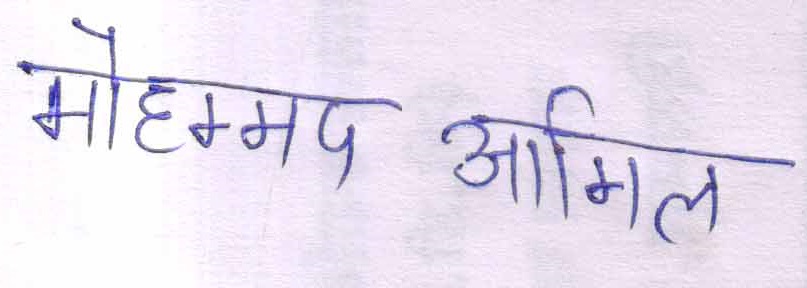 मोहम्मद आमिल